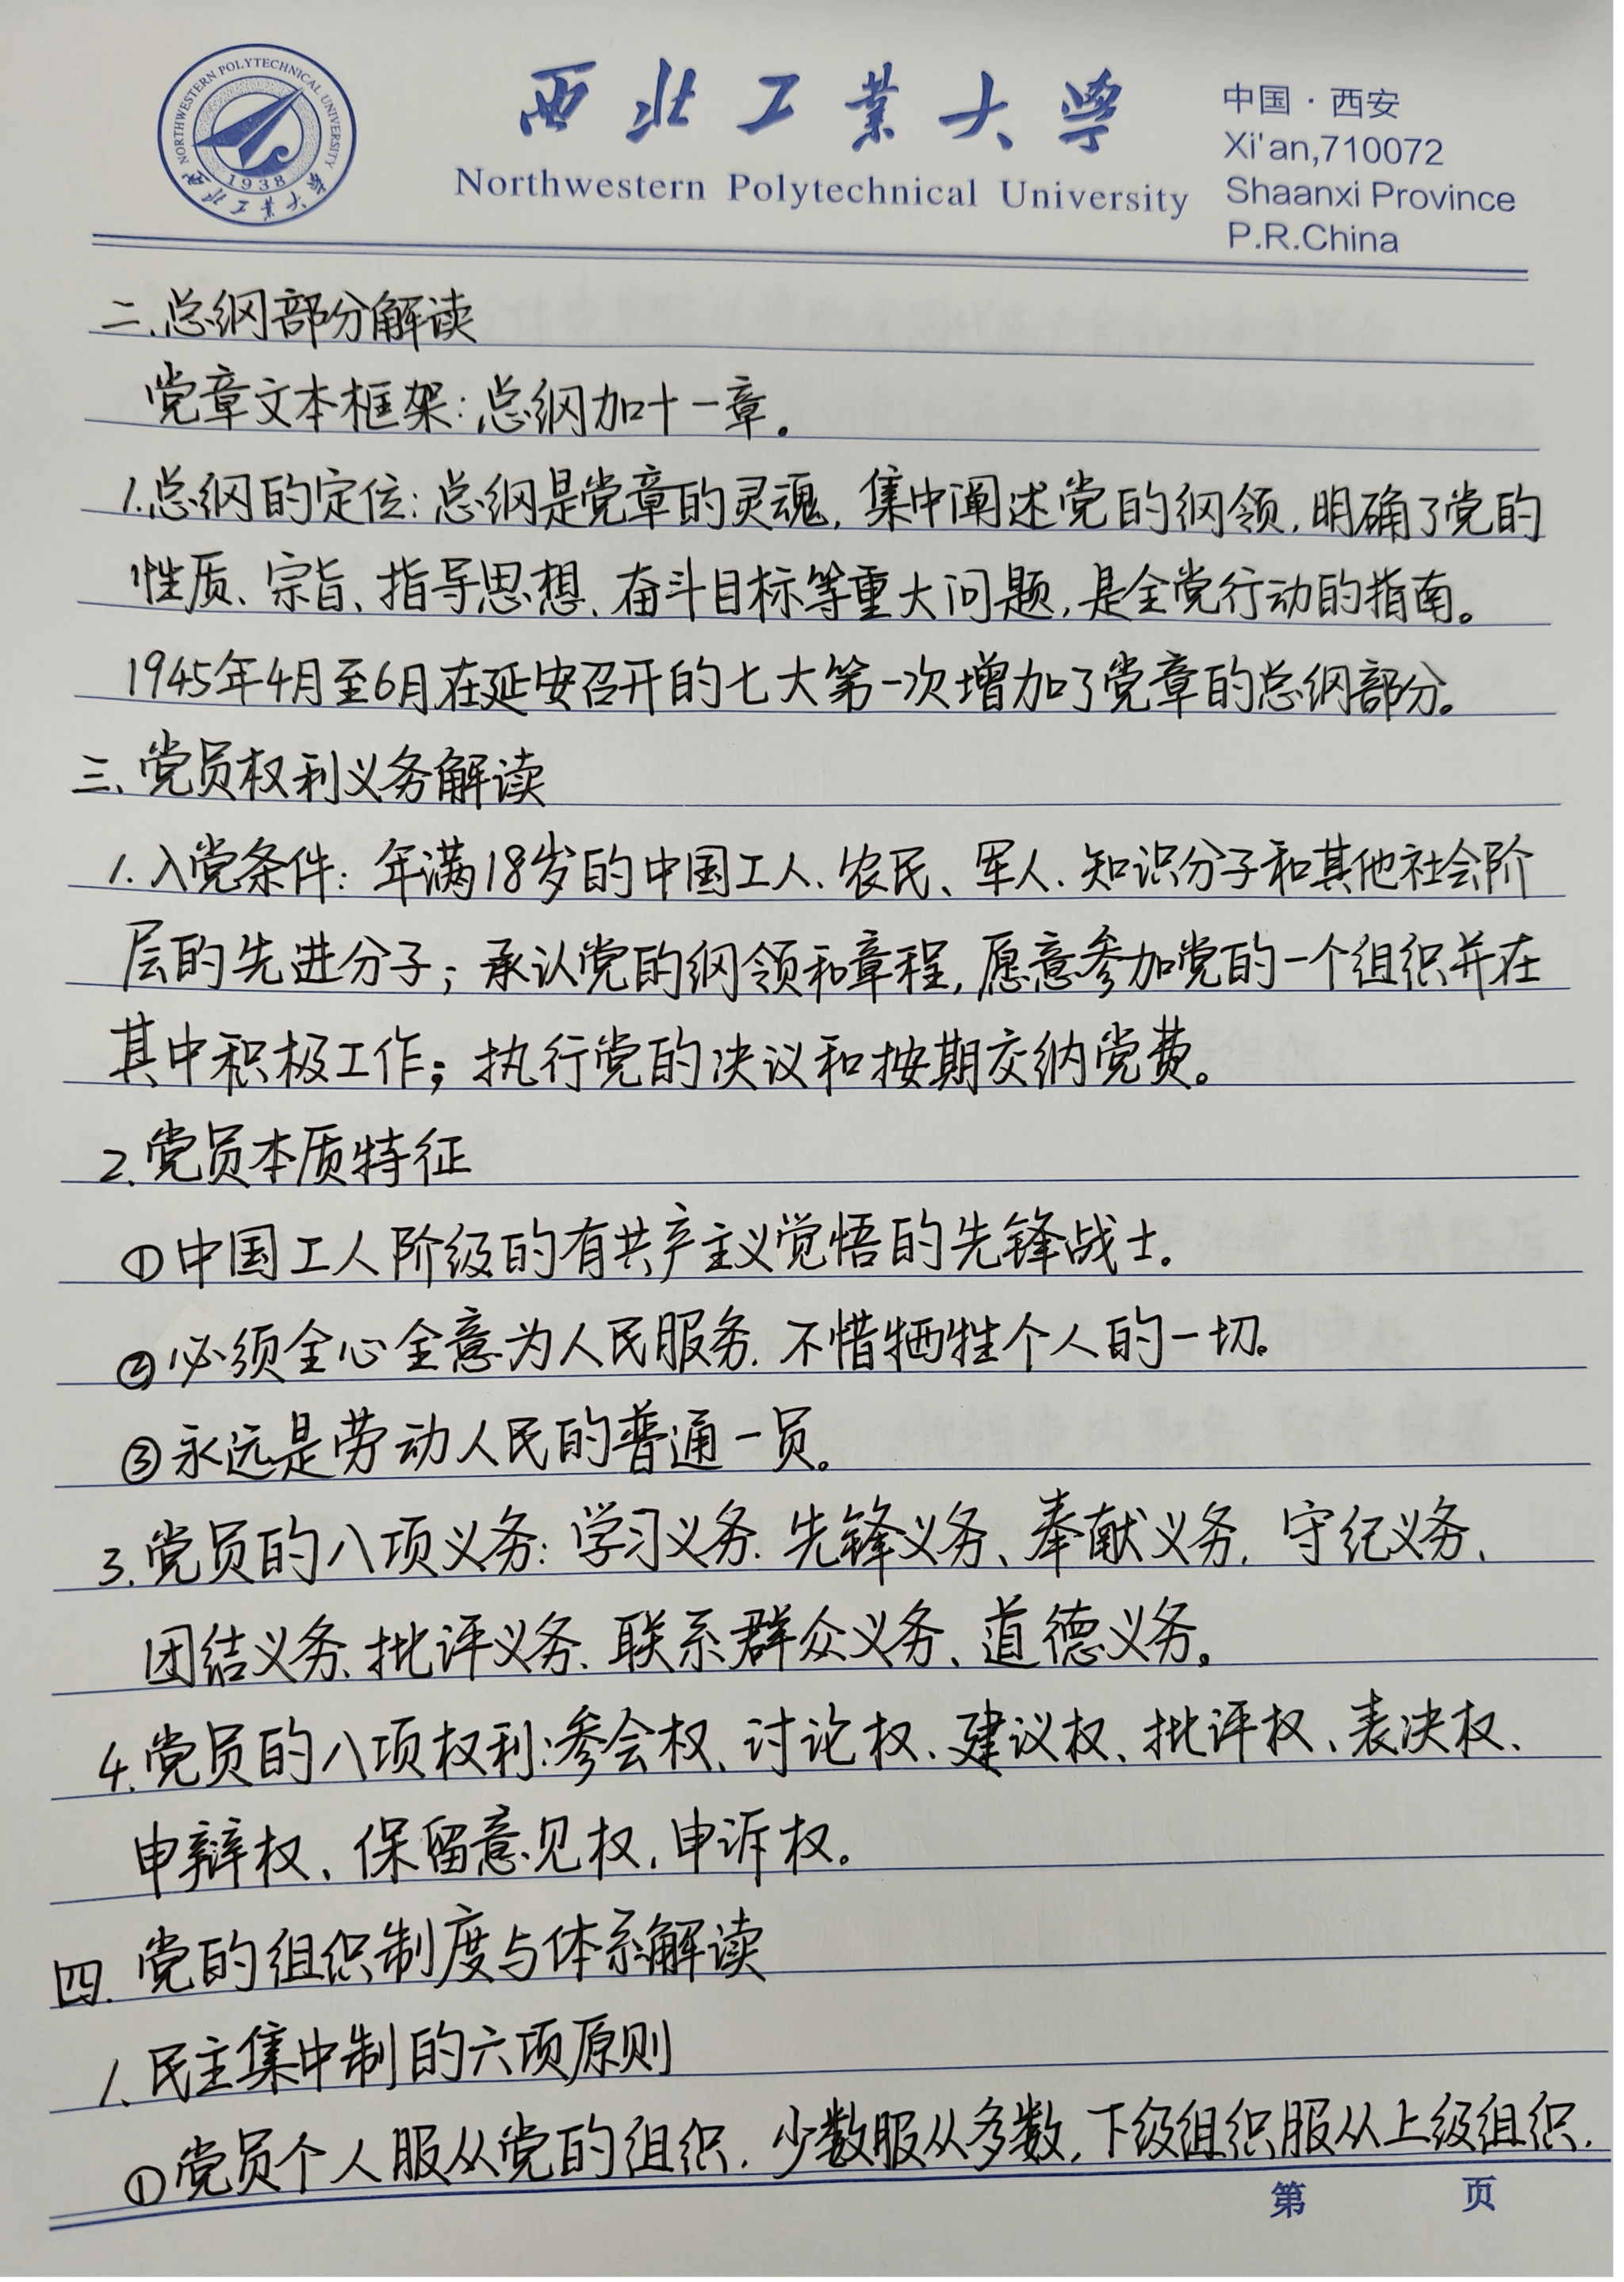 NORTHWESTERN POLYTECHNICAL UNIVERSITY
1938
西北工业大学
西北工業大學
Northwestern Polytechnical University
中国·西安
Xi'an,710072
Shaanxi Province
P.R.China
二.总纲部分解读
党章文本框架:总纲加十一章。
1.总纲的定位:总纲是党章的灵魂,集中阐述党的纲领,明确了党的
性质、宗旨、指导思想、奋斗目标等重大问题,是全党行动的指南。
1945年4月至6月在延安召开的七大第一次增加了党章的总纲部分。
三、党员权利义务解读
1.入党条件:年满18岁的中国工人、农民、军人、知识分子和其他社会阶
层的先进分子;承认党的纲领和章程,愿意参加党的一个组织并在
其中积极工作;执行党的决议和按期交纳党费。
2.党员本质特征
①中国工人阶级的有共产主义觉悟的先锋战士。
②必须全心全意为人民服务.不惜牺牲个人的一切。
③永远是劳动人民的普通一员。
3.党员的八项义务:学习义务、先锋义务、奉献义务、守纪义务、
团结义务、批评义务、联系群众义务、道德义务。
4.党员的八项权利:参会权、讨论权、建议权、批评权、表决权、
申辩权、保留意见权、申诉权。
四.党的组织制度与体系解读
1.民主集中制的六项原则
①党员个人服从党的组织.少数服从多数,下级组织服从上级组织.
第 页